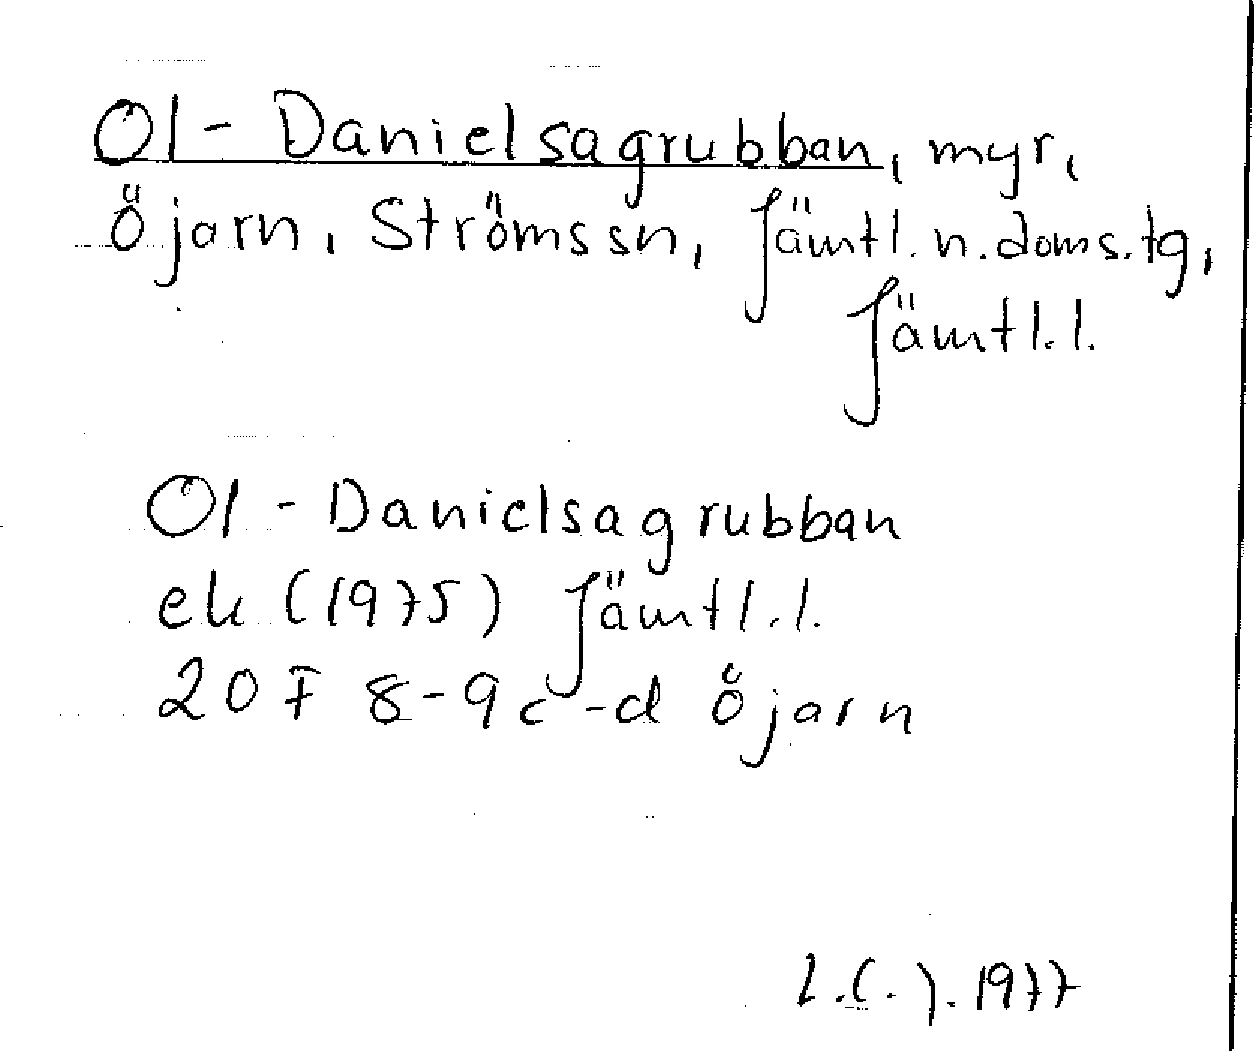 Ol-Danielsagrubban, myr,
Öjarn, Strömssn, Jämtl. n. doms. tg,
Jämtl. l.
Ol-Danielsagrubban
ek (1975) Jämtl. l.
20 F 8-9 c-d Öjarn
1977